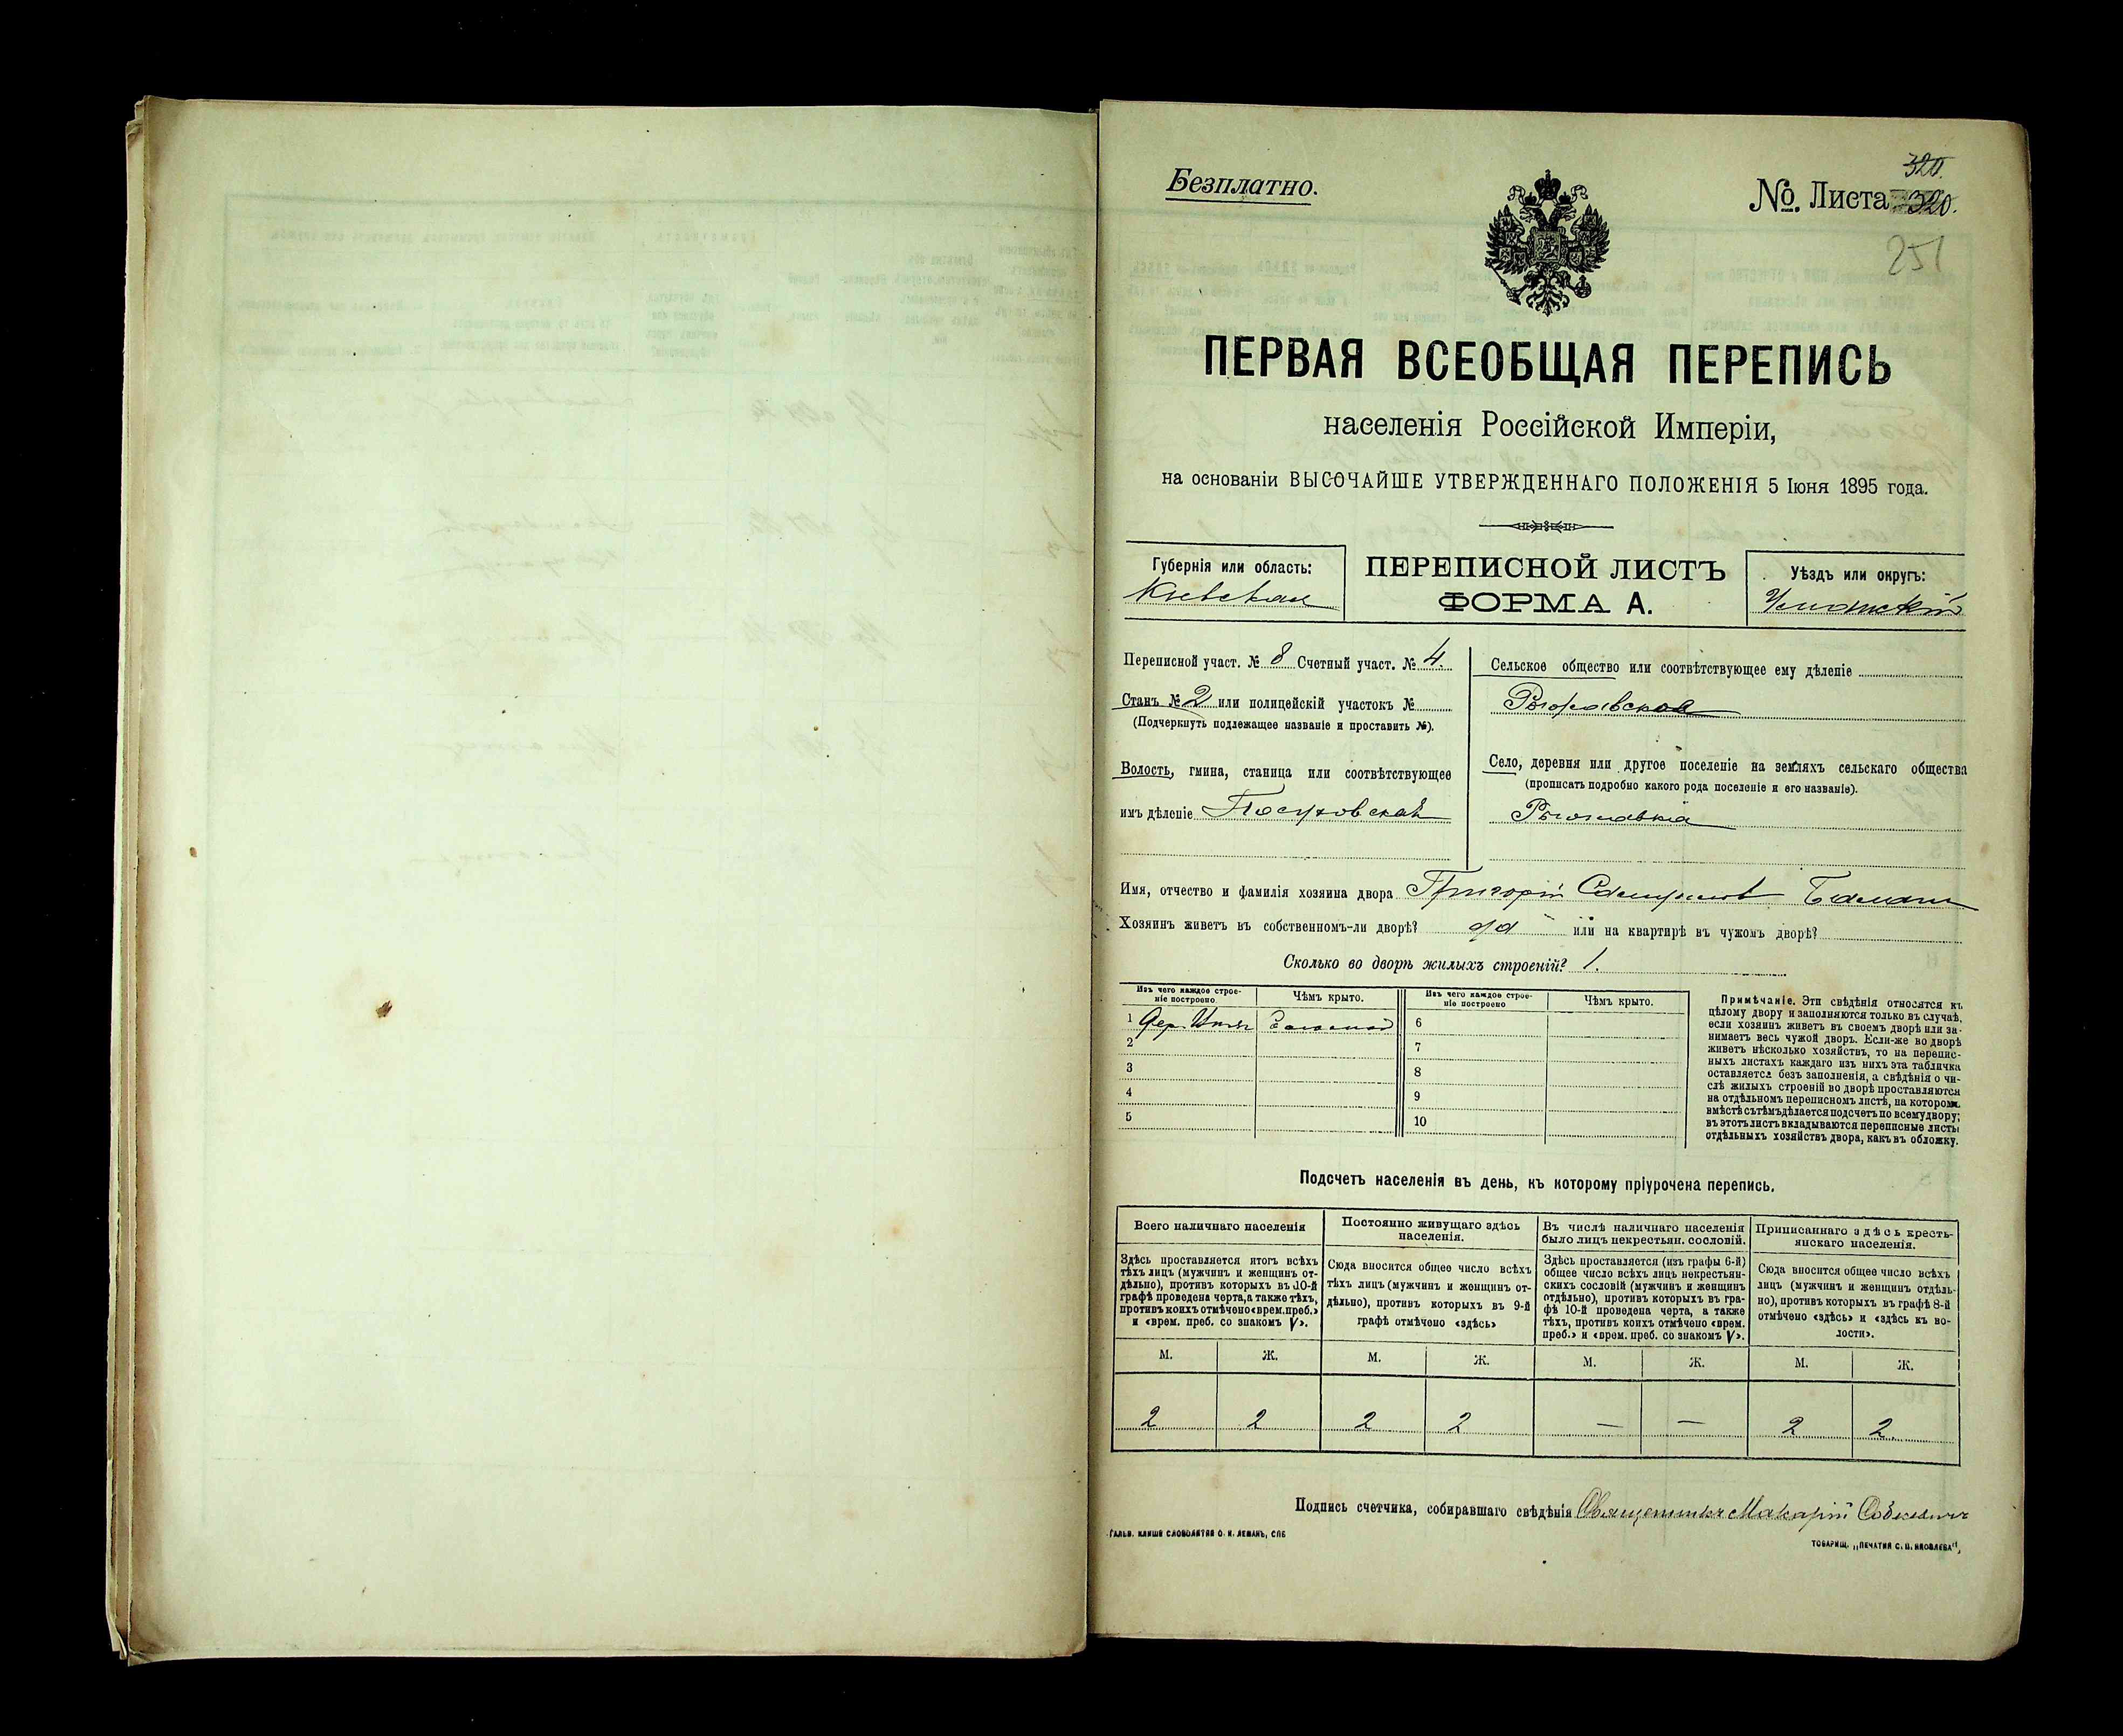 320.
Безплатно.
№. Листа 320.
251
ПЕРВАЯ ВСЕОБЩАЯ ПЕРЕПИСЬ
населенія Россійской Имперіи,
на основаніи ВЫСОЧАЙШЕ УТВЕРЖДЕННАГО ПОЛОЖЕНІЯ 5 Іюня 1895 года.
Губернія или область:
Кіевская
ПЕРЕПИСНОЙ ЛИСТЪ
ФОРМА А.
Уѣздъ или округъ:
Уманскій
Переписной участ. № 8 Счетный участ. № 4.
Станъ № 2 или полицейскій участокъ №
(Подчеркнуть подлежащее названіе и проставить №).
Волость, гмина, станица или соотвѣтствующее
имъ дѣленіе
Сельское общество или соотвѣтствующее ему дѣленіе
Рыжавское
Село, деревня или другое поселеніе на земляхъ сельскаго общества
(прописать подробно какого рода поселеніе и его названіе).
Рыжавка
Имя, отчество и фамилія хозяина двора Григорій
Хозяинъ живетъ въ собственномъ-ли дворѣ? да или на квартирѣ въ чужомъ дворѣ?
Сколько во дворѣ жилыхъ строеній? 1.
Изъ чего каждое строе-
ніе построено
Чѣмъ крыто.
Изъ чего каждое строе-
ніе построено
Чѣмъ крыто.
1 Дер. Соломой
2
3
4
5
6
7
8
9
10
Примѣчаніе. Эти свѣдѣнія относятся къ
цѣлому двору и заполняются только въ случаѣ,
если хозяинъ живетъ въ своемъ дворѣ или за-
нимаетъ весь чужой дворъ. Если-же во дворѣ
живетъ нѣсколько хозяйствъ, то на перепис-
ныхъ листахъ каждаго изъ нихъ эта табличка
оставляется безъ заполненія, а свѣдѣнія о чи-
слѣ жилыхъ строеній во дворѣ проставляются
на отдѣльномъ переписномъ листѣ, на которомъ
вмѣстѣ съ тѣмъ дѣлается подсчетъ по всему двору;
въ этотъ листъ вкладываются переписные листы
отдѣльныхъ хозяйствъ двора, какъ въ обложку.
Подсчетъ населенія въ день, къ которому пріурочена перепись.
Всего наличнаго населенія
Здѣсь проставляется итогъ всѣхъ
тѣхъ лицъ (мужчинъ и женщинъ от-
дѣльно), противъ которыхъ въ 10-й
графѣ проведена черта, а также тѣхъ,
противъ коихъ отмѣчено «врем. преб.»
и «врем. преб. со знакомъ V».
Постоянно живущаго здѣсь
населенія.
Сюда вносится общее число всѣхъ
тѣхъ лицъ (мужчинъ и женщинъ от-
дѣльно), противъ которыхъ въ 9-й
графѣ отмѣчено «здѣсь»
Въ числѣ наличнаго населенія
было лицъ некрестьян. сословій.
Здѣсь проставляется (изъ графы 6-й)
общее число всѣхъ лицъ некрестьян-
скихъ сословій (мужчинъ и женщинъ
отдѣльно), противъ которыхъ въ гра-
фѣ 10-й проведена черта, а также
тѣхъ, противъ коихъ отмѣчено «врем.
преб.» и «врем. преб. со знакомъ V».
Приписаннаго здѣсь кресть-
янскаго населенія.
Сюда вносится общее число всѣхъ
лицъ (мужчинъ и женщинъ отдѣль-
но), противъ которыхъ въ графѣ 8-й
отмѣчено «здѣсь» и «здѣсь къ во-
лости».
М. Ж. М. Ж. М. Ж. М. Ж.
2 2 2 2 — — 2 2.
Подпись счетчика, собиравшаго свѣдѣнія Священникъ Макарій
ГАЛЬВ. КЛИШЕ СЛОВОЛИТНИ О. И. ЛЕМАНЪ, СПБ
ТОВАРИЩ. „ПЕЧАТНЯ С. П. ЯКОВЛЕВА",